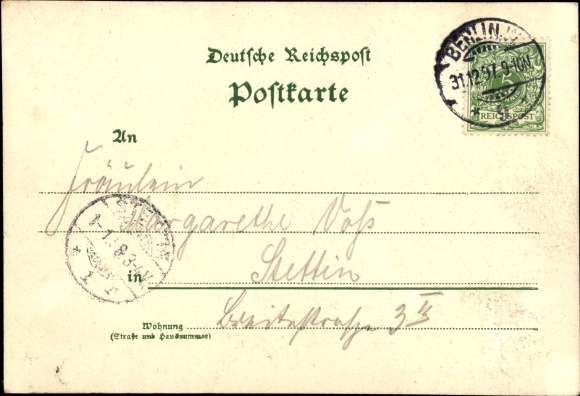 Deutsche Reichspost
Postkarte
BERLIN
31.12.97. 9-10N.
5
REICHSPOST
An
Fräulein
Margarethe Voß
STETTIN
in Stettin
Breitestraße 3 III
Wohnung
(Straße und Hausnummer)